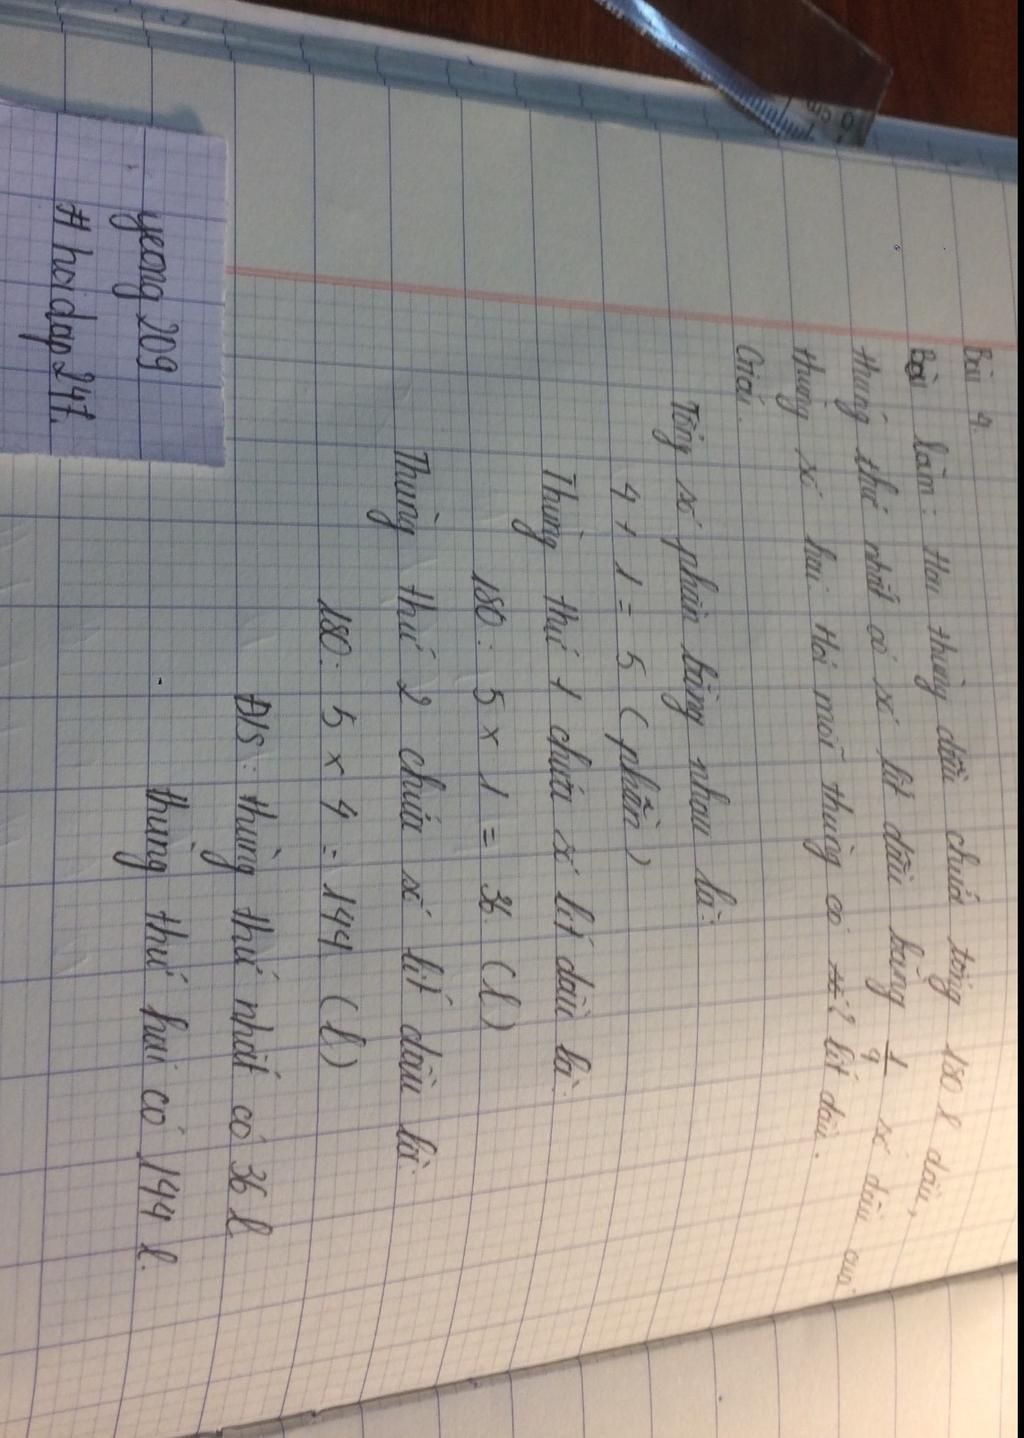 Bài 4.
Bài làm: Hai thùng dầu chứa tổng 180 l dầu,
thùng thứ nhất có số lít dầu bằng 1/4 số dầu của
thùng số hai. Hỏi mỗi thùng có lít dầu.
Giải.
Tổng số phần bằng nhau là:
4 + 1 = 5 (phần)
Thùng thứ 1 chứa số lít dầu là:
180 : 5 x 1 = 36 (l)
Thùng thứ 2 chứa số lít dầu là:
180 : 5 x 4 = 144 (l)
Đ/S: thùng thứ nhất có 36 l
thùng thứ hai có 144 l.
yeong 209
# hoidap247.
CM
0